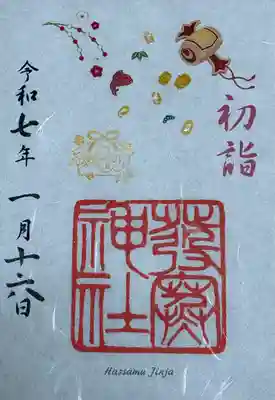 初詣
令和七年 一月十六日
発寒神社
Hassamu Jinja